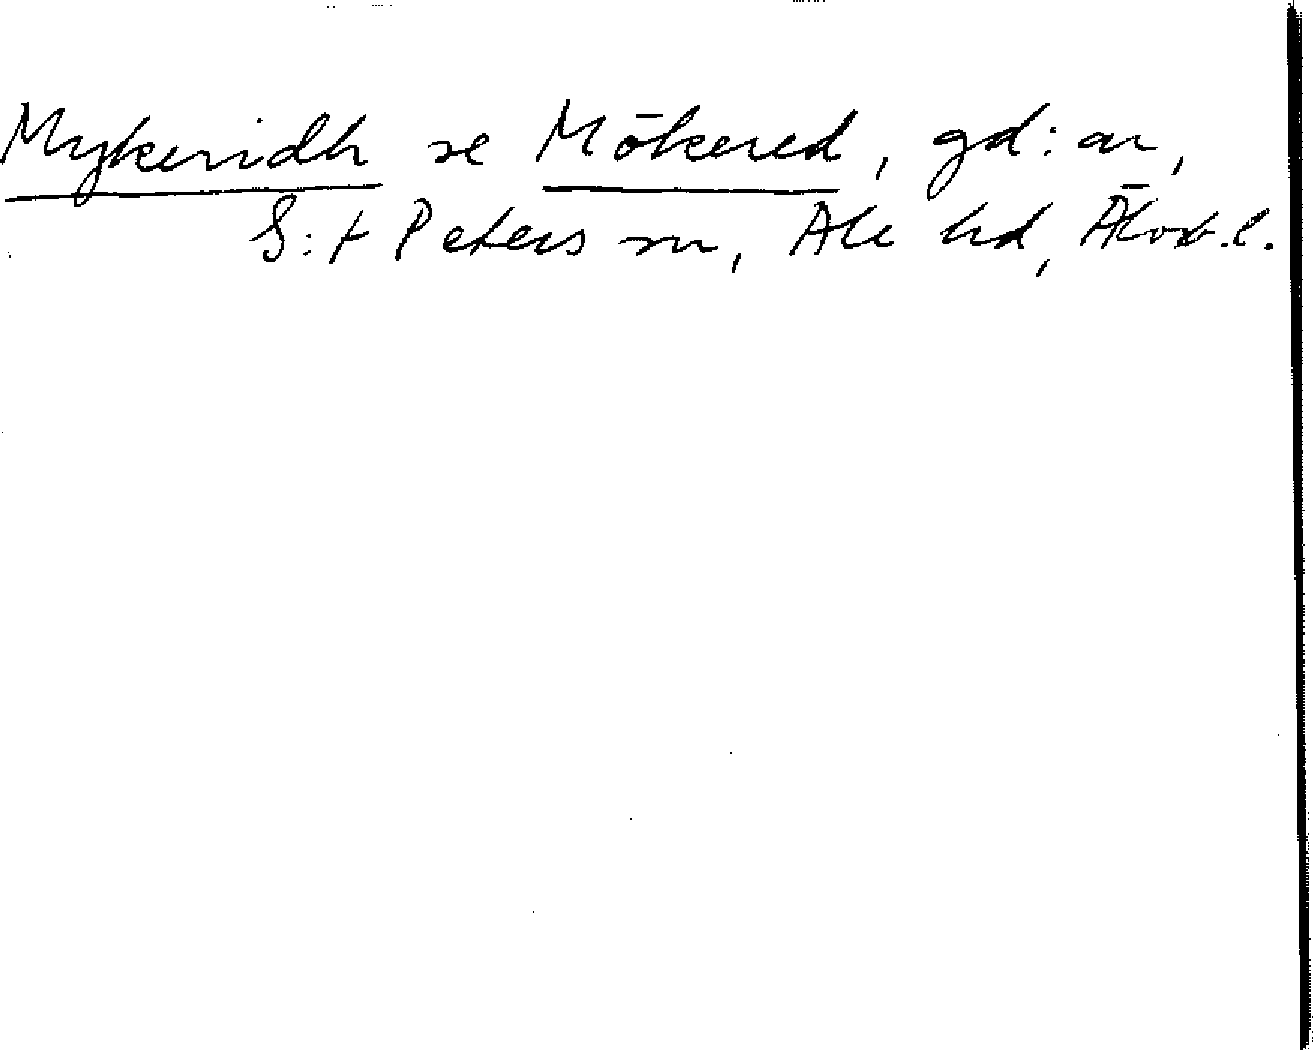 Mykeridh se Mökered, gd:ar,
S:t Peters sn, Ale hd, Älvsb.l.